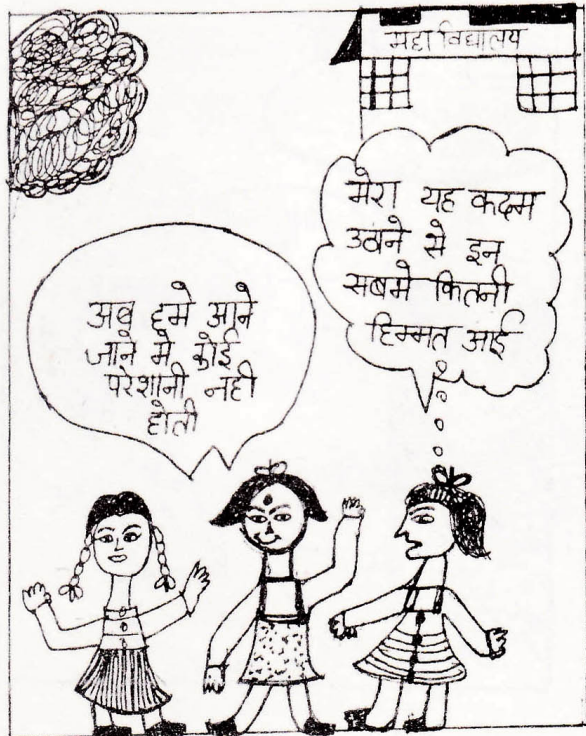 महाविद्यालय
मेरा यह कदम
उठाने से इन
सबमे कितनी
हिम्मत आई
अब हमे आने
जाने मे कोई
परेशानी नही
होती